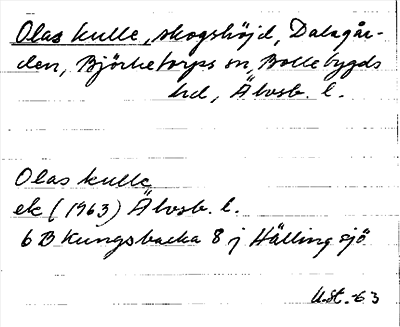 Olas kulle, skogshöjd, Dalagår-
den, Björketorps sn, Bollebygds
hd, Älvsb. l.
Olas kulle
ek (1963) Älvsb. l.
6 B Kungsbacka 8 j Hällingsjö
U.St. -63